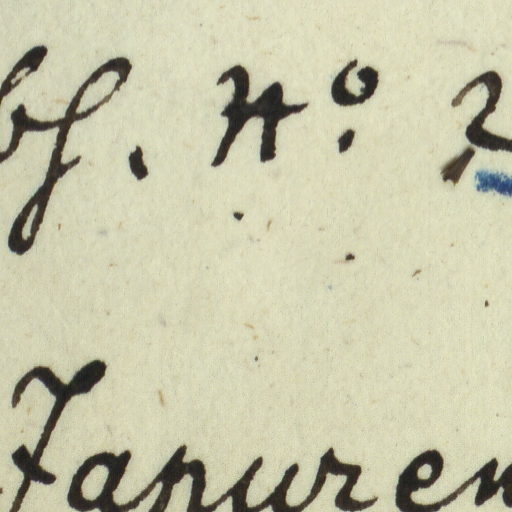 bf. No. 2
Japuren